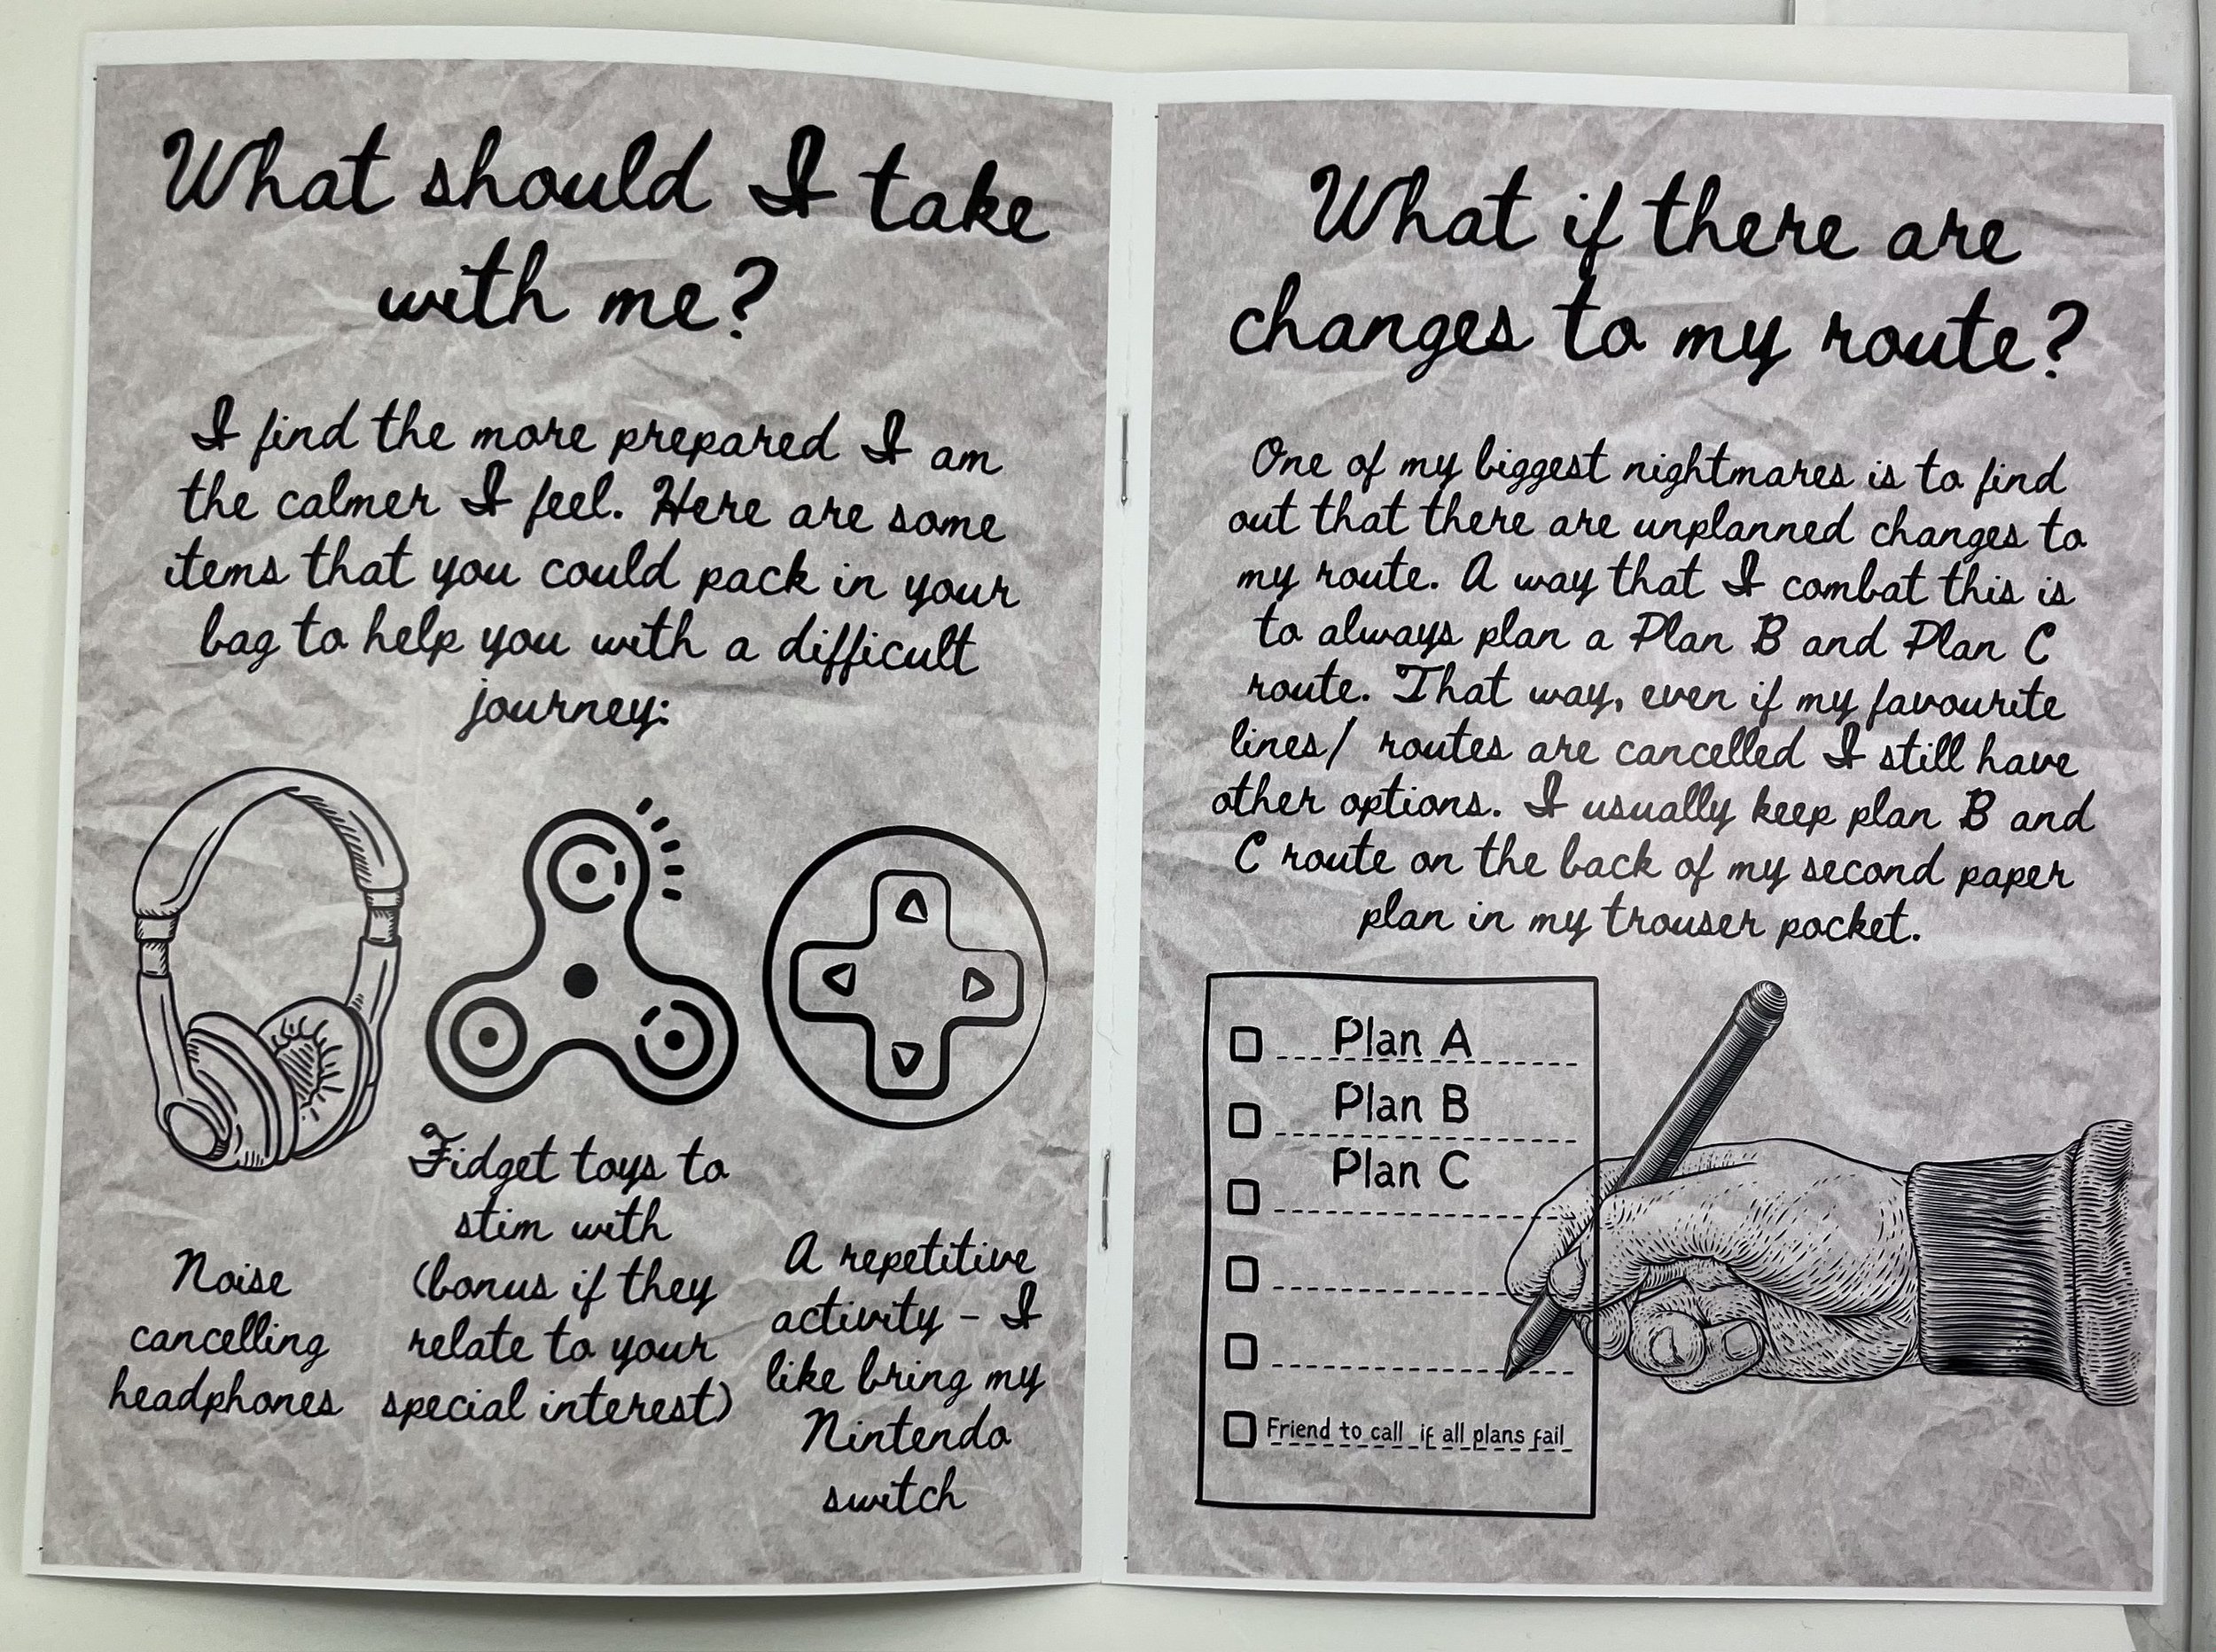 What should I take
with me?
I find the more prepared I am
the calmer I feel. Here are some
items that you could pack in your
bag to help you with a difficult
journey:
Noise
cancelling
headphones
Fidget toys to
stim with
(bonus if they
relate to your
special interest)
A repetitive
activity - I
like bring my
Nintendo
switch
What if there are
changes to my route?
One of my biggest nightmares is to find
out that there are unplanned changes to
my route. A way that I combat this is
to always plan a Plan B and Plan C
route. That way, even if my favourite
lines/ routes are cancelled I still have
other options. I usually keep plan B and
C route on the back of my second paper
plan in my trouser pocket.
Plan A
Plan B
Plan C
Friend to call if all plans fail